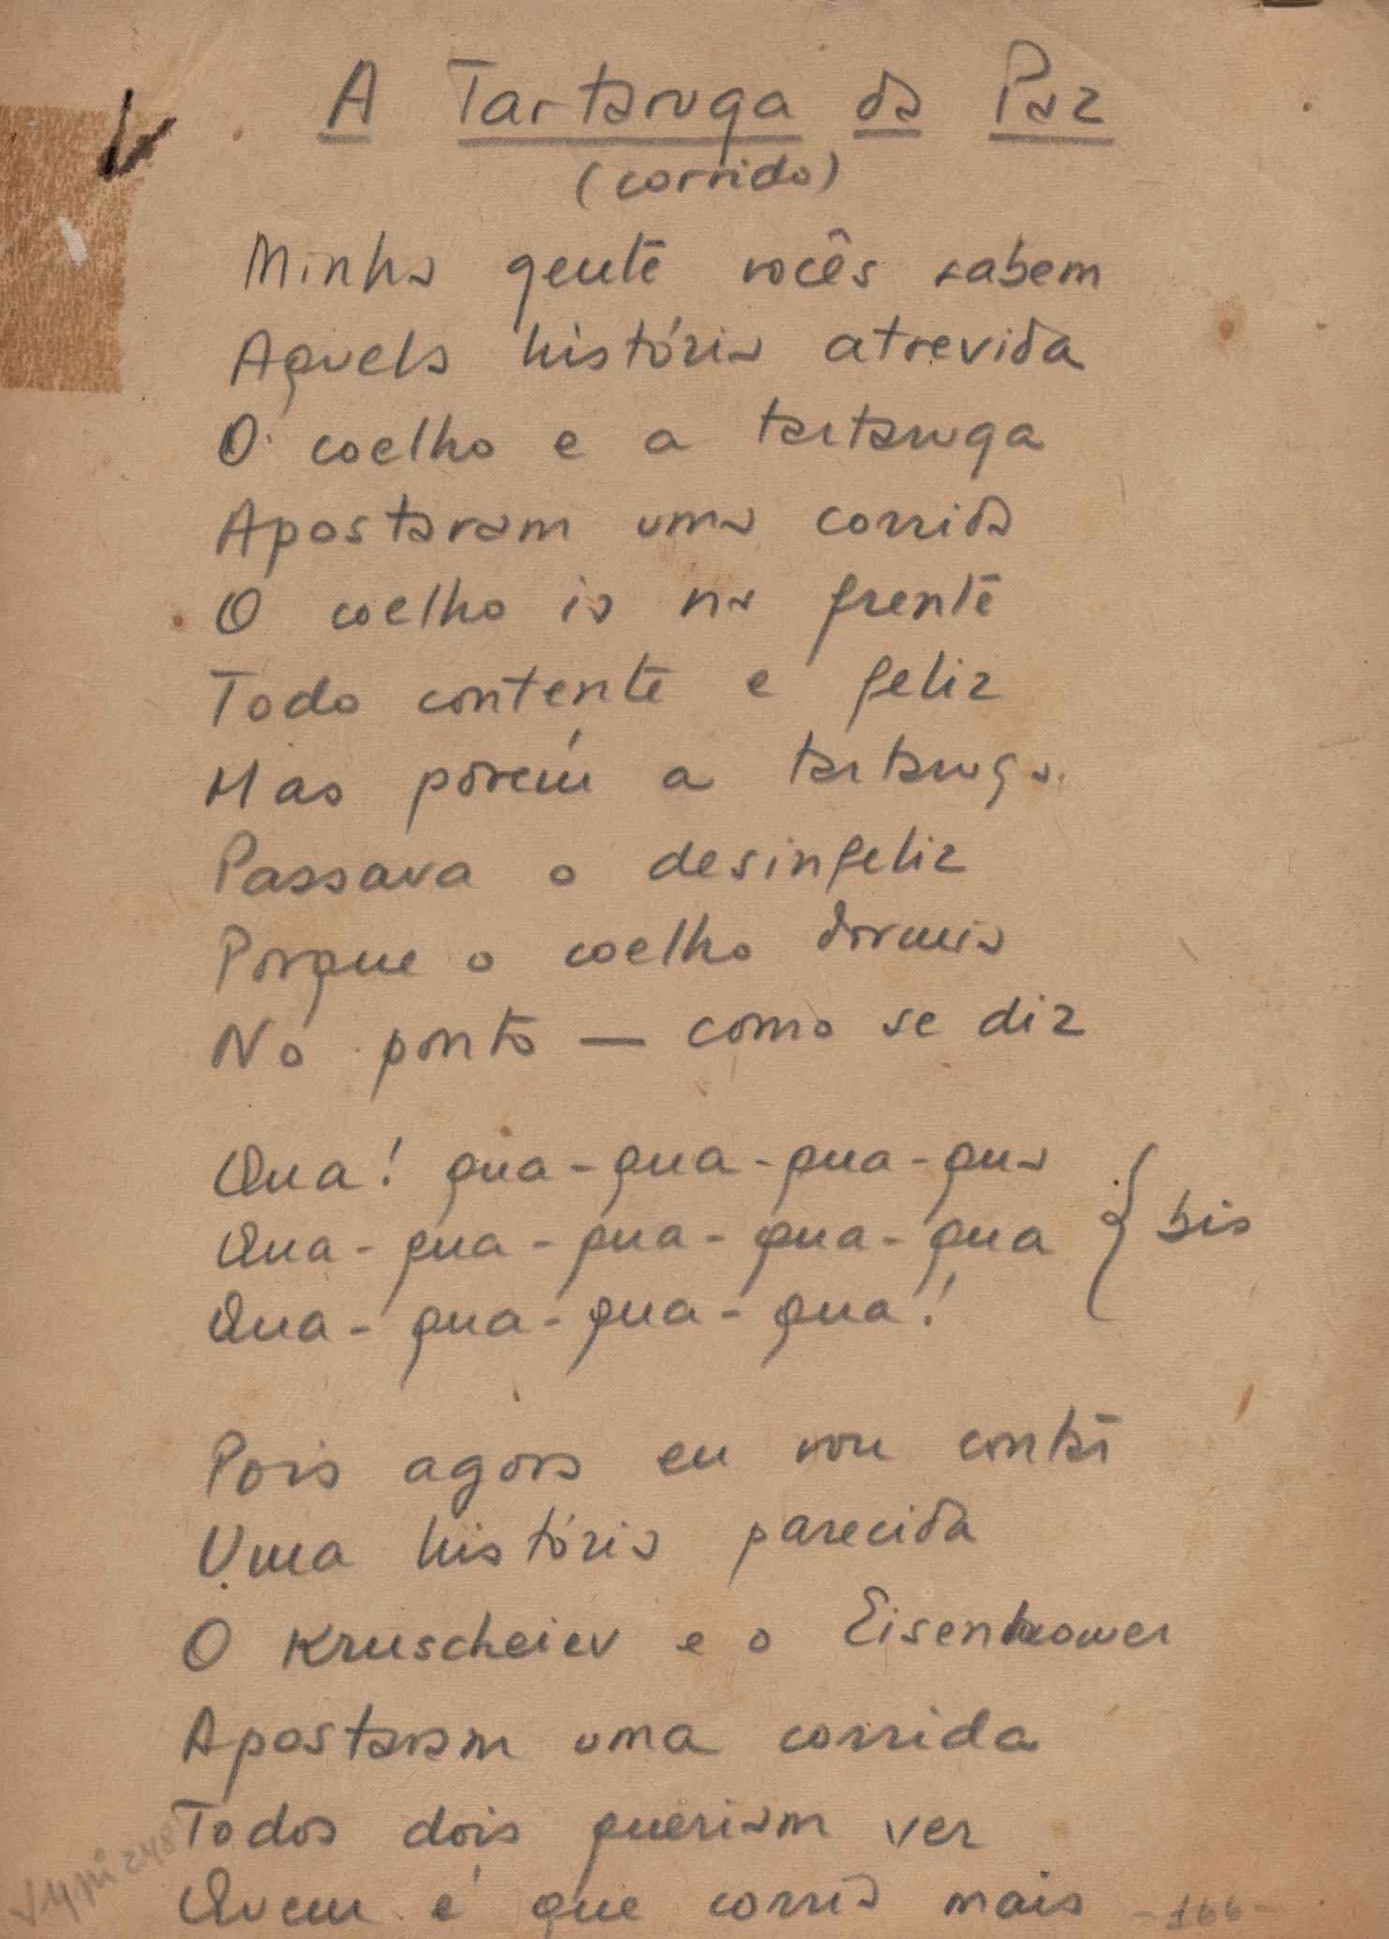 A Tartaruga da Paz
(corrido)
Minha gente vocês sabem
Aquela história atrevida
O coelho e a tartaruga
Apostaram uma corrida
O coelho ia na frente
Todo contente e feliz
Mas porém a tartaruga
Passava o desinfeliz
Porque o coelho dormia
No ponto — como se diz
Qua! qua - qua - qua - qua
Qua - qua - qua - qua - qua } bis
Qua - qua - qua - qua!
Pois agora eu vou contá
Uma história parecida
O Kruscheiev e o Eisenhower
Apostaram uma corrida
Todos dois queriam ver
Quem é que corria mais
- 166 -